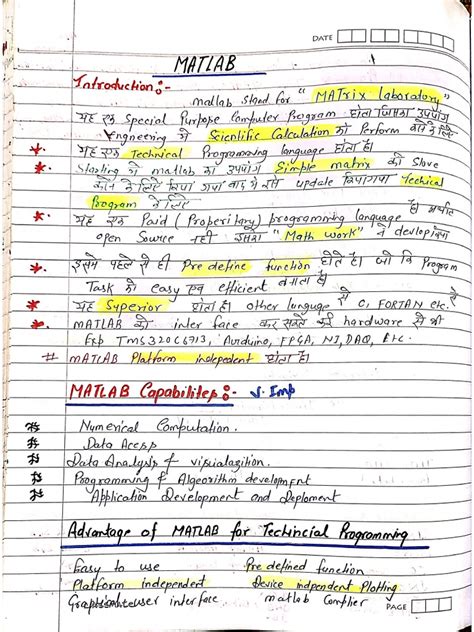 DATE
MATLAB
Introduction :-
matlab stand for "MATrix laboratory"
यह एक Special Purpope Computer Program होता जिसका उपयोग
Engneering में Scienlific Calculation को Perform करने के लिए
* यह एक Technical Programming language होता है।
* Starting में matlab का उपयोग Simple matrix को Slove
करने के लिए किया गया बाद में इसे update किया गया Techical
Program के लिए
* यह एक Paid (Properitary) programming language है। अर्थात
open Source नहीं इसका "Math work" ने devlop किया
* इसमे पहले से ही Pre define function होते है। जो कि Program
Task को easy एवं efficient बनाता है
* यह Superior होता है। other language से C, FORTAN etc. से
* MATLAB को inter face कर सकते हैं hardware से भी
TMS320C6713, Aurduino, FPGA, NI, DAQ, Etc.
# MATLAB Platform indepedent होता है।
MATLAB Capabilites :- V. Imp
Numerical Computation.
Data Acess
Data Analysis & visualazition.
Programming & Algorithm developmfnt
Application Development and Deploment
Advantage of MATLAB for Techincial Programming
Easy to use Pre defined function
Platform independent Device indpendent Plotting
Graphical user interface matlab Complier
PAGE